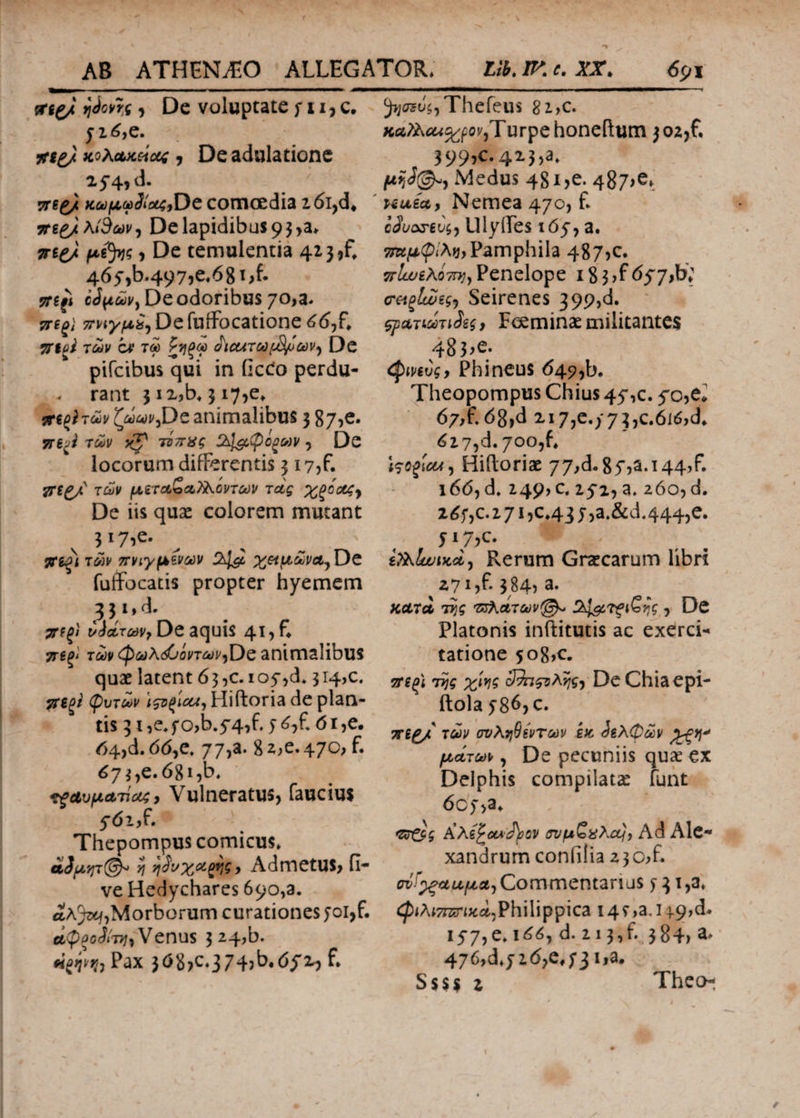 AB ATHENÆO ALLEGATOR. Lib. IV. c. XX. 691
περὶ ἡδονῆς, De voluptate 511, c.
526, e.
περὶ κολακείας, De adulatione
254, d.
περὶ κωμῳδίας, De comœdia 261, d.
περὶ λίθων, De lapidibus 93, a.
περὶ μέθης, De temulentia 423, f.
465, b. 497, e. 681, f.
περὶ ὀδμῶν, De odoribus 70, a.
περὶ πνιγμοῦ, De suffocatione 66, f.
περὶ τῶν ἐν τῷ ξηρῷ διαιτωμένων, De
piscibus qui in sicco perdu-
rant 312, b. 317, e.
περὶ τῶν ζώων, De animalibus 387, e.
περὶ τῶν κατὰ τόπους διαφορῶν, De
locorum differentis 317, f.
περὶ τῶν μεταβαλλόντων τὰς χρόας,
De iis quæ colorem mutant
317, e.
περὶ τῶν πνιγμένων διὰ χειμῶνα, De
suffocatis propter hyemem
331, d.
περὶ ὑδάτων, De aquis 41, f.
περὶ τῶν φωλευόντων, De animalibus
quæ latent 63, c. 105, d. 314, c.
περὶ φυτῶν ἱστορίαι, Historia de plan-
tis 31, e. 50, b. 54, f. 56, f. 61, e.
64, d. 66, e. 77, a. 82, e. 470, f.
673, e. 681, b.
τραυματίας, Vulneratus, saucius
562, f.
Thepompus comicus.
ἄδμητος ἢ ἡδυχάρης, Admetus, si-
ve Hedychares 690, a.
ἄλθαι, Morborum curationes 501, f.
ἀφροδίτη, Venus 324, b.
εἰρήνη, Pax 368, c. 374, b. 652, f.
θησεύς, Theseus 82, c.
καλλαισχρον, Turpe honestum 302, f.
399, c. 423, a.
μῆδος, Medus 481, e. 487, e.
νεμέα, Nemea 470, f.
ὀδυσσεύς, Ulysses 165, a.
παμφίλη, Pamphila 487, c.
πηνελόπη, Penelope 183, f 657, b.
σειρῆνες, Seirenes 399, d.
στρατιώτιδες, Fœminæ militantes
483, e.
φινεύς, Phineus 649, b.
Theopompus Chius 45, c. 50, e.
67, f. 68, d 217, e. 573, c. 616, d.
627, d. 700, f.
ἱστορίαι, Historiæ 77, d. 85, a. 144, f.
166, d. 249, c. 252, a. 260, d.
265, c. 271, c. 435, a. & d. 444, e.
517, c.
ἑλληνικά, Rerum Græcarum libri
271, f. 384, a.
κατὰ τῆς πλάτωνος διατριβῆς, De
Platonis institutis ac exerci-
tatione 508, c.
περὶ τῆς χίης ἐπιστολῆς, De Chia epi-
stola 586, c.
περὶ τῶν συληθέντων ἐκ δελφῶν χρη-
μάτων, De pecuniis quæ ex
Delphis compilatæ sunt
605, a.
πρὸς Ἀλέξανδρον συμβουλαί, Ad Ale-
xandrum consilia 230, f.
σύγγραμμα, Commentarius 531, a.
φιλιππικά, Philippica 145, a. 149, d.
157, e. 166, d. 213, f. 384, a.
476, d. 526, e. 531, a.
Ssss 2 Theo-